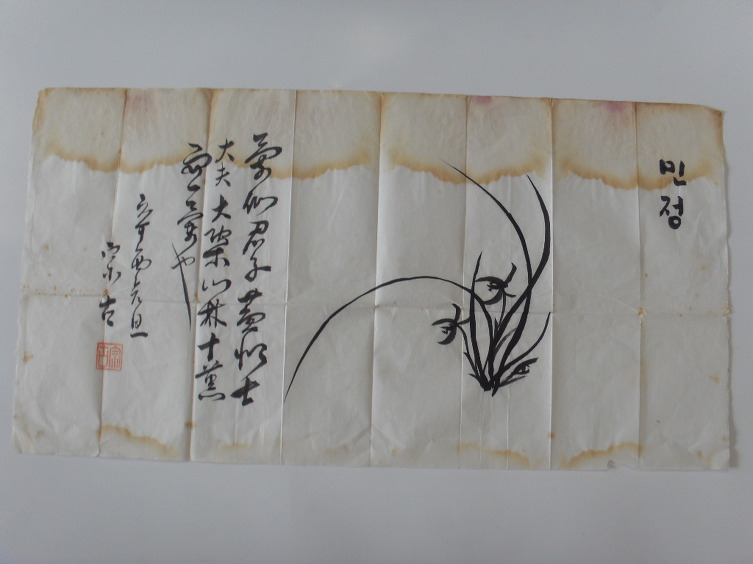 민정
蘭似君子蕙似士
大夫大槩山林十蕙
而一蘭也
辛酉元旦
宗古